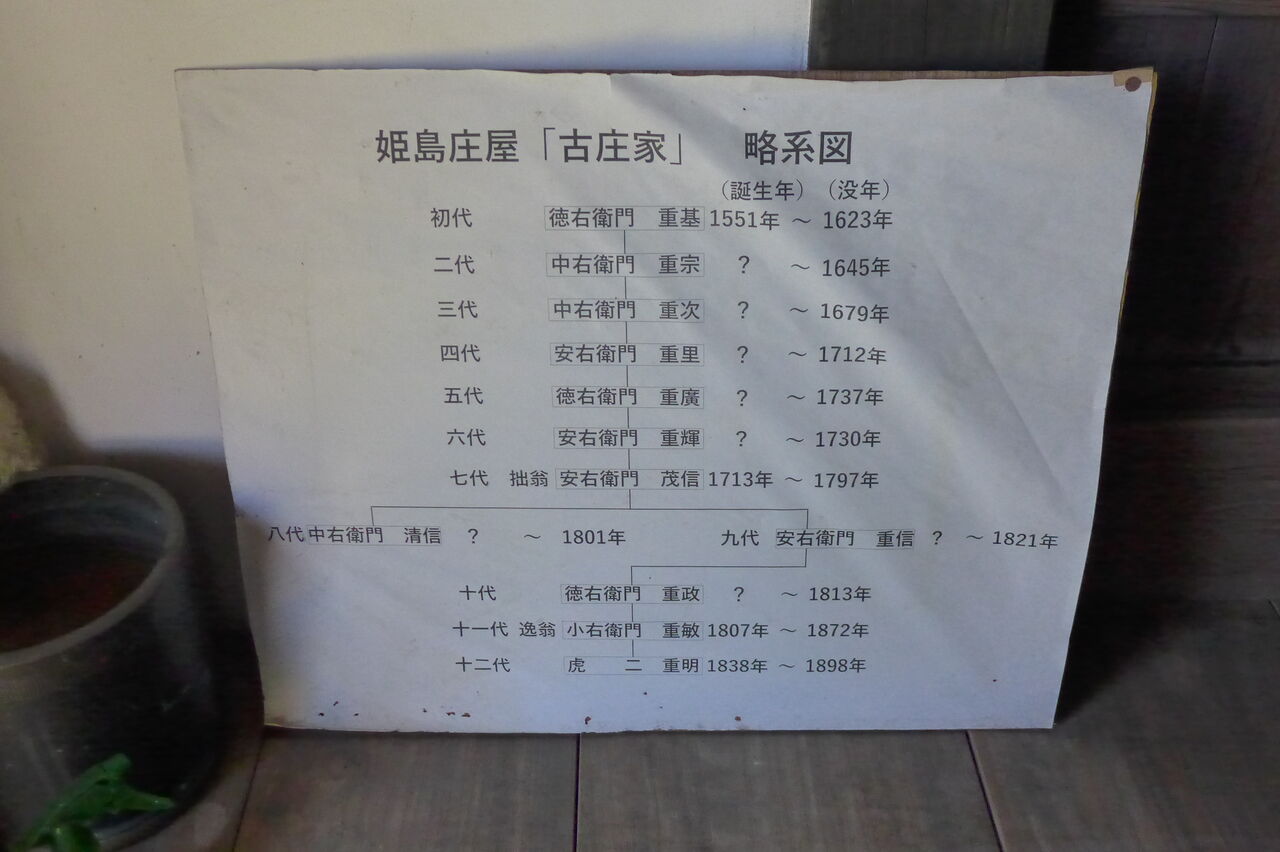 姫島庄屋「古庄家」 略系図
（誕生年）（没年）
初代 徳右衛門 重基 1551年 ～ 1623年
二代 中右衛門 重宗 ？ ～ 1645年
三代 中右衛門 重次 ？ ～ 1679年
四代 安右衛門 重里 ？ ～ 1712年
五代 徳右衛門 重廣 ？ ～ 1737年
六代 安右衛門 重輝 ？ ～ 1730年
七代 拙翁 安右衛門 茂信 1713年 ～ 1797年
八代 中右衛門 清信 ？ ～ 1801年 九代 安右衛門 重信 ？ ～ 1821年
十代 徳右衛門 重政 ？ ～ 1813年
十一代 逸翁 小右衛門 重敏 1807年 ～ 1872年
十二代 虎 二 重明 1838年 ～ 1898年